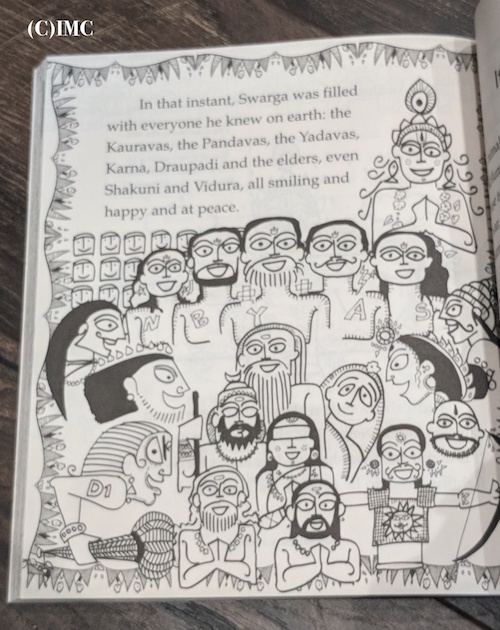 (C)IMC
In that instant, Swarga was filled
with everyone he knew on earth: the
Kauravas, the Pandavas, the Yadavas,
Karna, Draupadi and the elders, even
Shakuni and Vidura, all smiling and
happy and at peace.
N B Y A S
D1